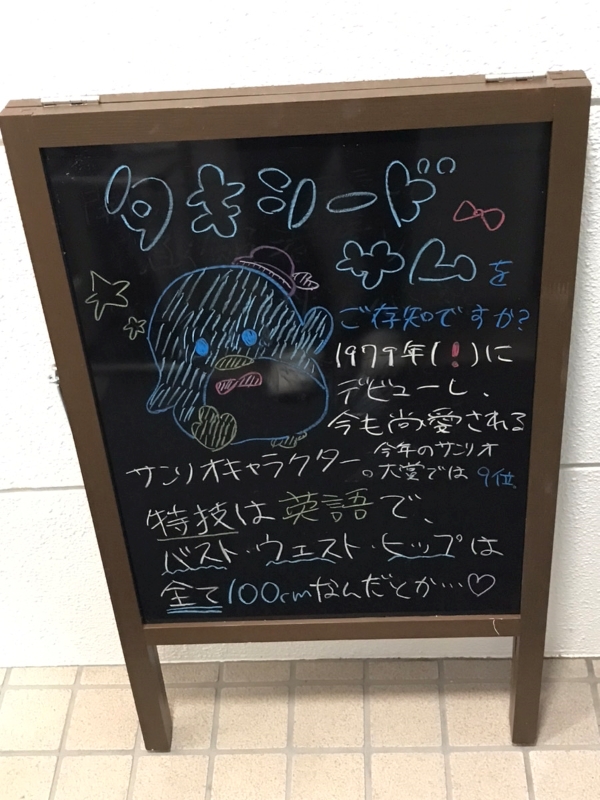 タキシード
サムを
ご存知ですか?
1979年(!)に
デビューし、
今も尚愛される
サンリオキャラクター。
今年のサンリオ
大賞では 9位
特技は英語で、
バスト・ウエスト・ヒップは
全て100cmなんだとか…♡